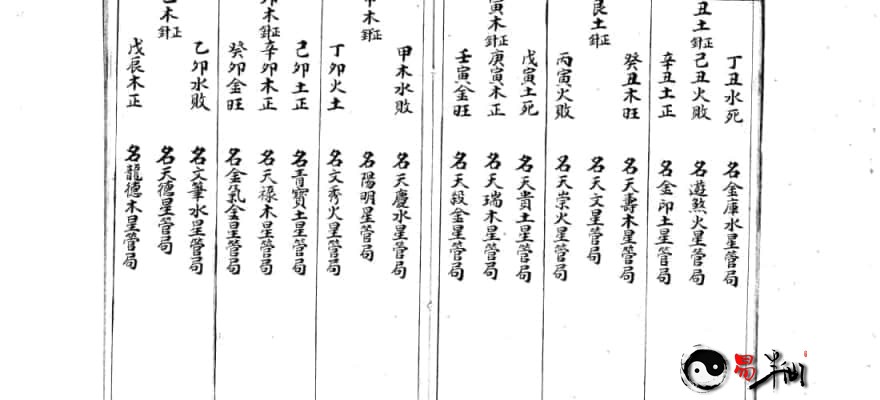 丁丑水死　名金庫水星管局
丑土正針己丑火敗　名遊煞火星管局
辛丑土正　名金印土星管局
癸丑木旺　名天壽木星管局
艮土正針　名天文星管局
丙寅火敗　名天崇火星管局
戊寅土死　名天貴土星管局
寅木正針庚寅木正　名天瑞木星管局
壬寅金旺　名天殺金星管局
甲木水敗　名天慶水星管局
木正針　名陽明星管局
丁卯火土　名文秀火星管局
己卯土正　名青寶土星管局
卯木正針辛卯木正　名天祿木星管局
癸卯金旺　名金氣金星管局
乙卯水敗　名文筆水星管局
乙木正針　名天德星管局
戊辰木正　名龍德木星管局
易半仙